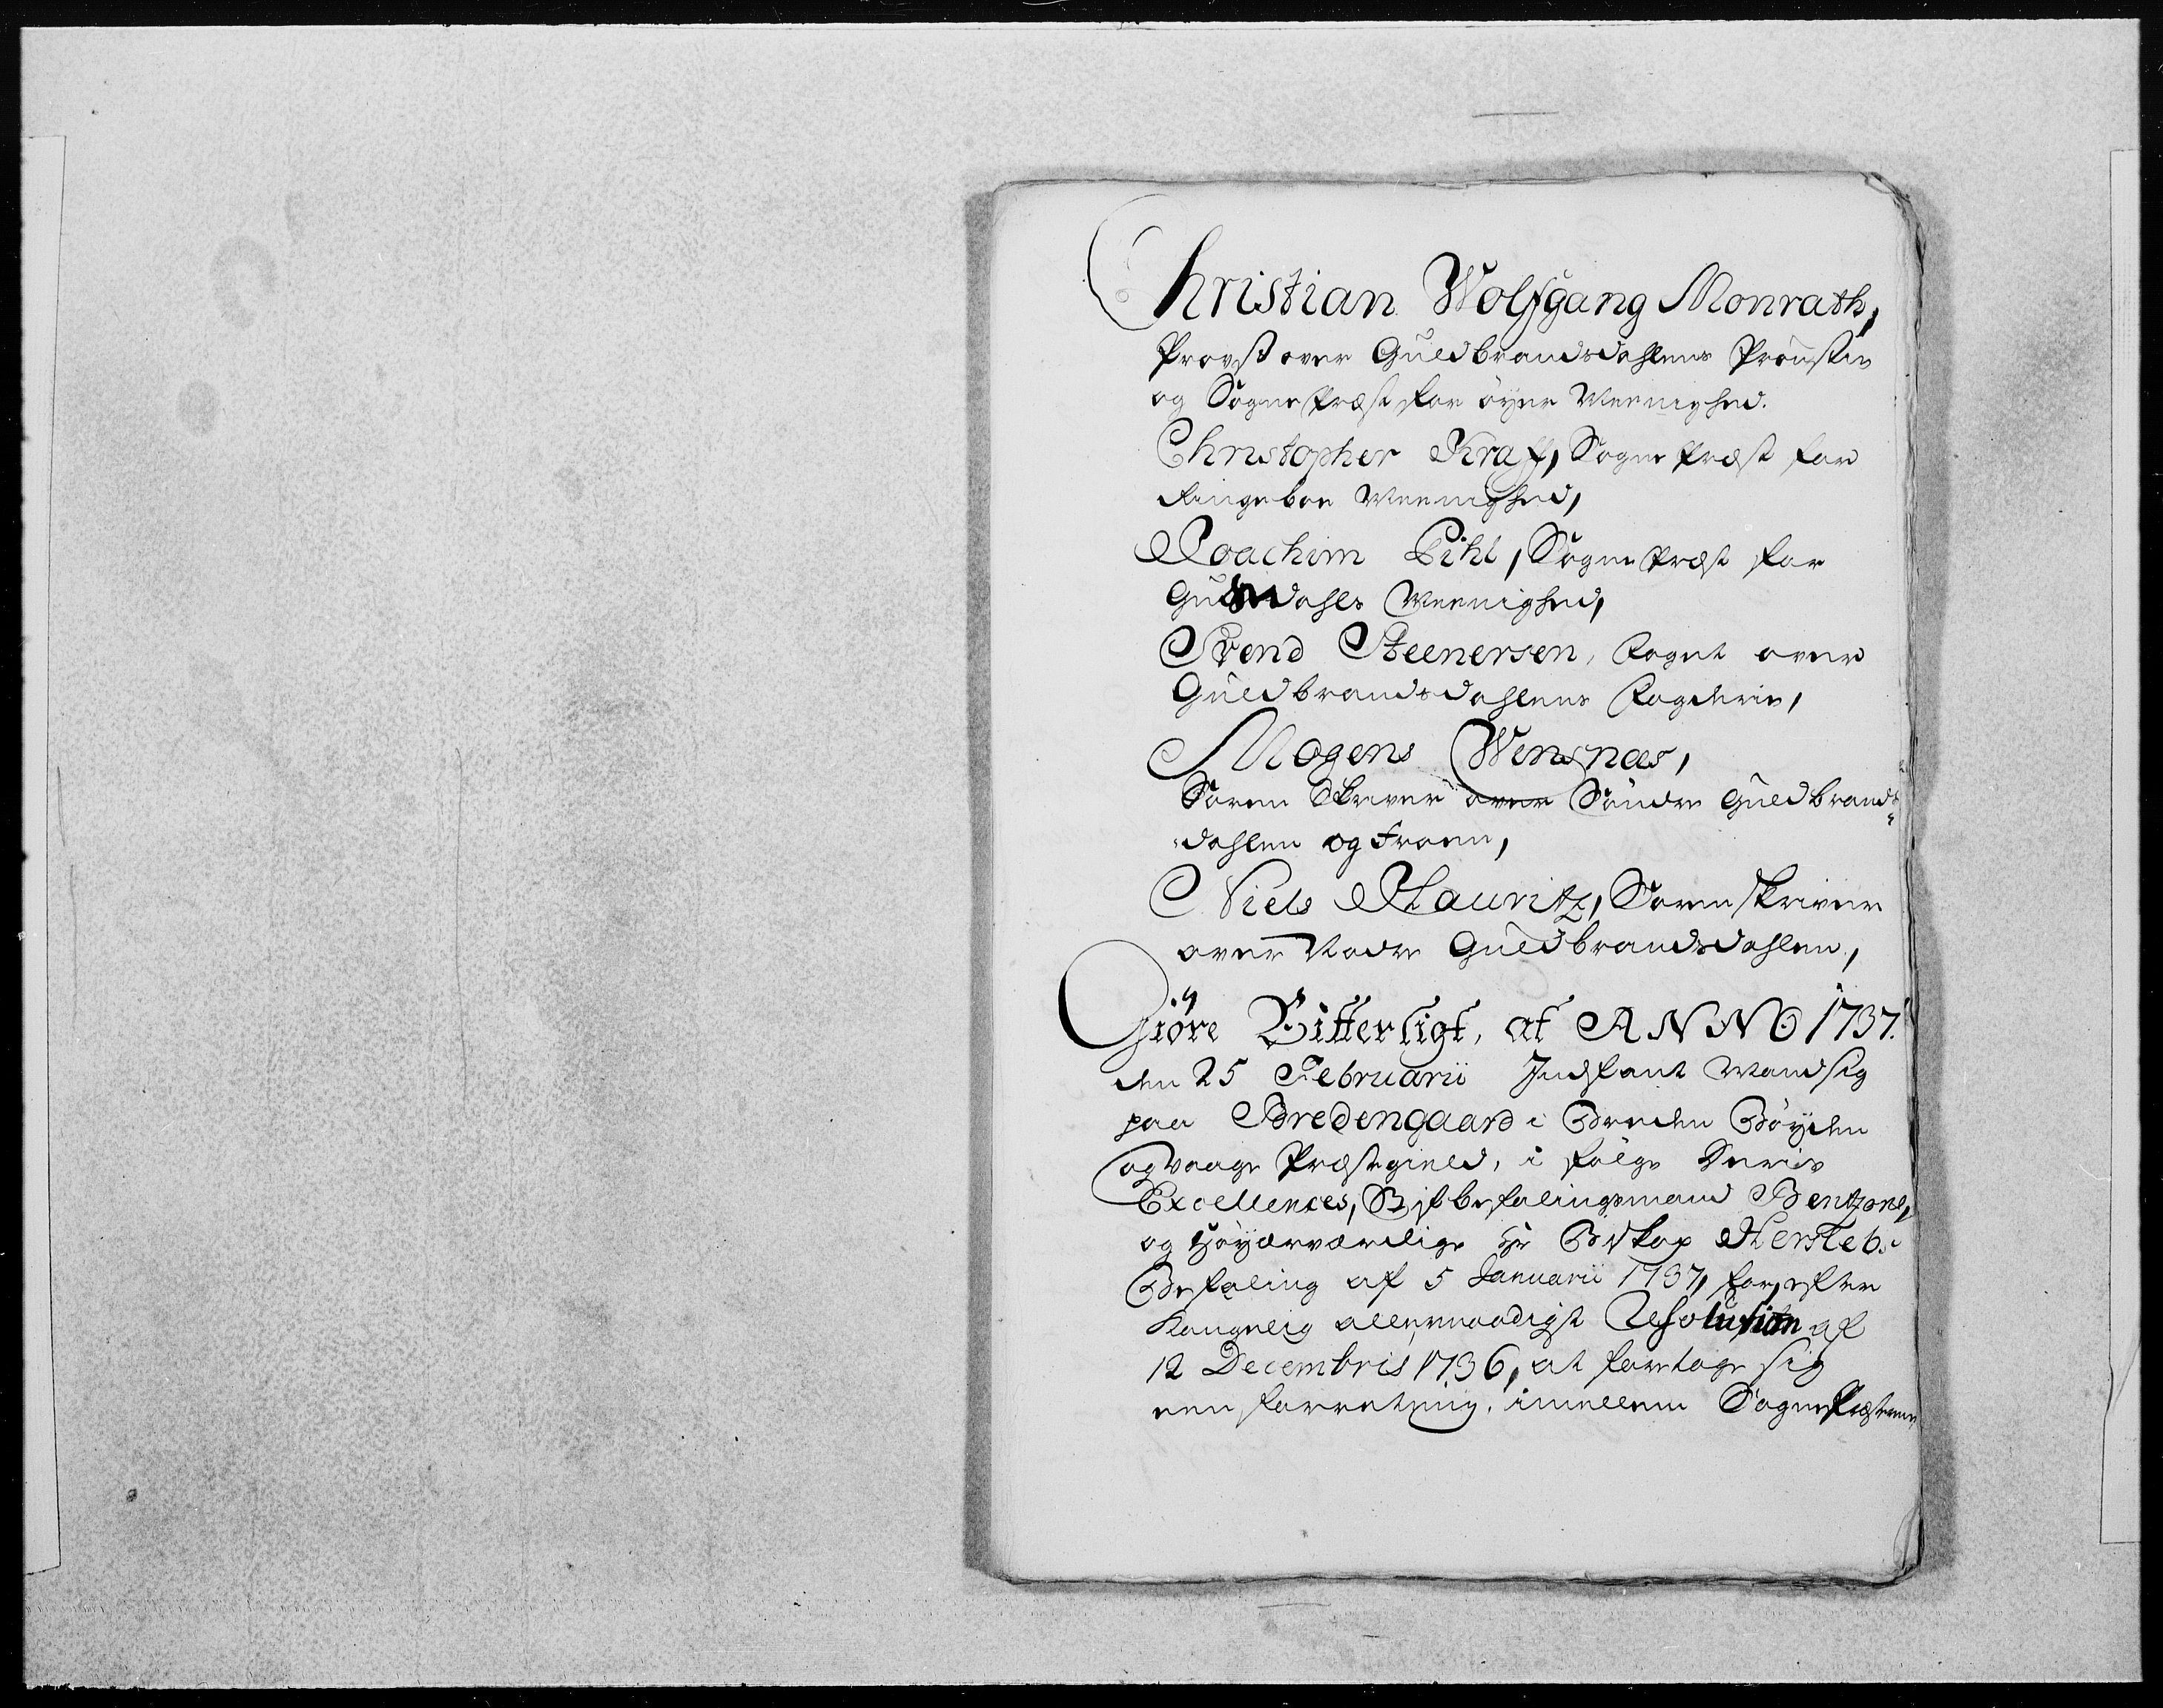 Christian Wolfgang Monrath,
Provst over Guldbrandsdahlens Provstie
og Sogne Præst for öyer Meenighed.
Christopher Kraft, Sogne Præst for
Ringeboe Meenighed,
Joachim Pihl, Sogne Præst for
Gusdahls Meenighed,
Svend Steenersen, Foget over
Guldbrandsdahlens Fogderie,
Mogens Wensnæs,
Soren Skriver over Söndre Guldbrands¬
dahlen og Froen,
Niels Mauritz, Soren skriver
over Nodre Guldbrandsdahlen,
Giöre Vitterligt, at ANNO 1737.
den 25 Februarii Indfant Mand sig
paa Bredengaard i Breden Böyden
og Vaage Præstegield, i fölge Deris
Excellences, Stiftbefalingsmand Bentzons,
og Höyærværdige Hr Biskop Herslebs
Befaling af 5 Januarii 1737, for, efter
Kongelig allernaadigst Resolution af
12 Decembris 1736, at foretage sig
een forretning, imellem Sogne Præsterne